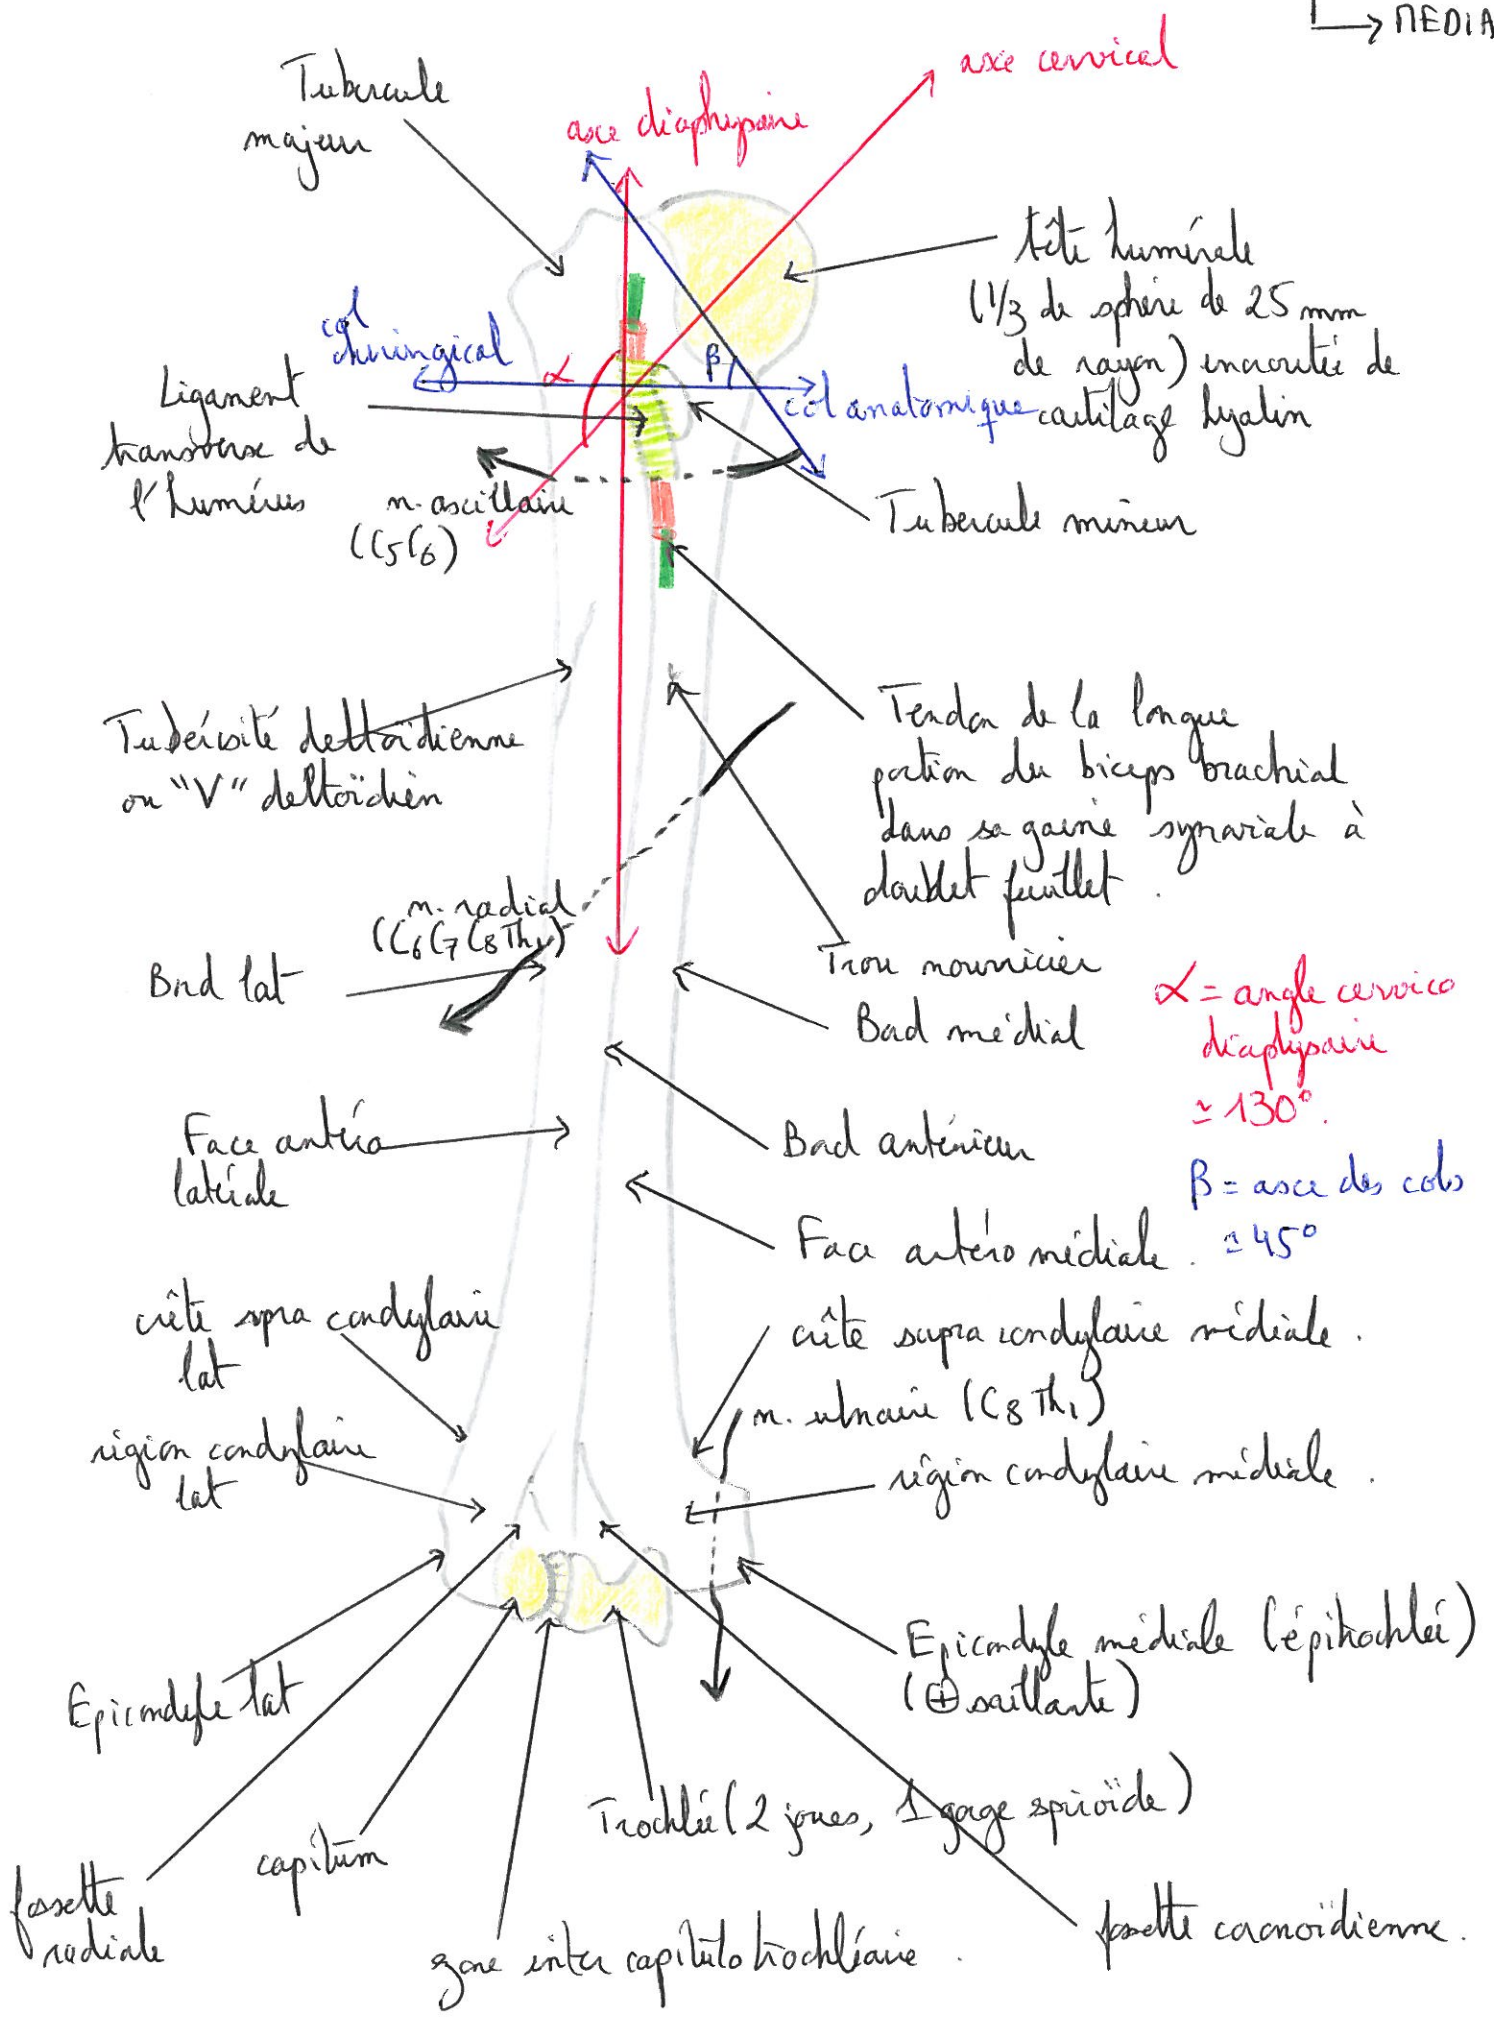 MEDIA
axe cervical
Tubercule
majeur
axe diaphysaire
tête humérale
(1/3 de sphère de 25 mm
de rayon) encroutée de
cartilage hyalin
col
chirurgical
α
β
col anatomique
Ligament
transverse de
l'humérus
n. axillaire
(C5C6)
Tubercule mineur
Tubérosité deltoïdienne
ou "V" deltoïdien
Tendon de la longue
portion du biceps brachial
dans sa gaine synoviale à
doublet feuillet.
n. radial
(C6C7C8Th1)
Bord lat
Trou nourricier
Bord médial
α = angle cervico
diaphysaire
≃ 130°.
Face antéro
latérale
Bord antérieur
β = axe des cols
≃ 45°
Face antéro médiale.
crête supra condylaire
lat
crête supra condylaire médiale.
n. ulnaire (C8Th1)
région condylaire
lat
région condylaire médiale.
Epicondyle médiale (épitrochlée)
(⊕ saillante)
Epicondyle lat
Trochlée (2 joues, 1 gorge spiroïde)
capitum
fossette
radiale
fossette coronoïdienne.
zone inter capitulo trochléaire.